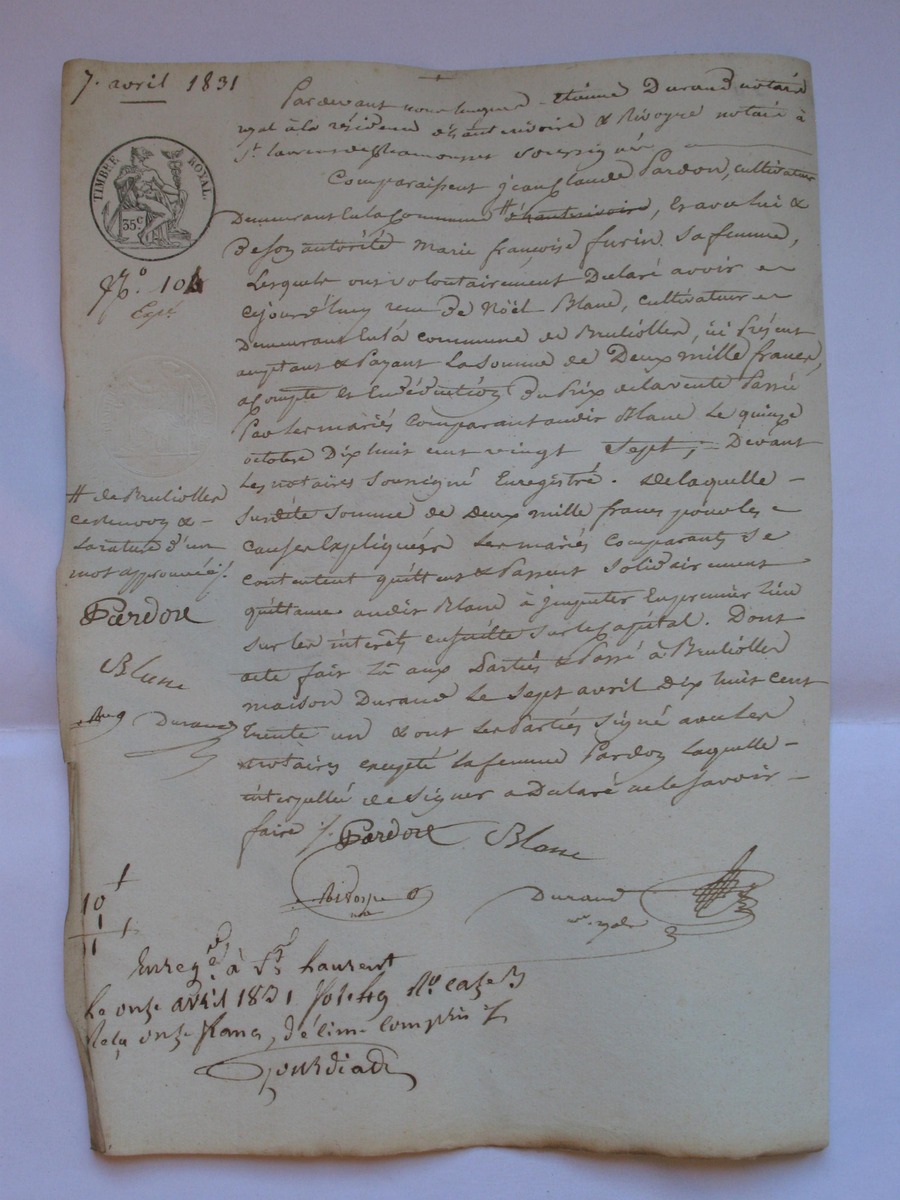 7. avril 1831
Pardevant nous Etienne Durand notaire
royal à la résidence d'hauterivoire & Rivoyre notaire à
St laurent de chamousset soussignés
Comparaissent Jean Claude Pardon, cultivateur
Demeurant en la Commune # d'hauterivoire, Et avec lui &
De son autorité Marie françoise furin sa femme,
Lesquels ont volontairement Déclaré avoir en
cejourd'huy reçu De Nöel Blanc, cultivateur en
Demeurant en la commune de Brulioller, ici Présent
acceptant & Payant La somme de Deux mille francs
acompte Et En Déduction Du Prix de la vente Passée
Par Les mariés Comparant audit Blanc Le quinze
octobre Dix huit cent vingt Sept, Devant
Les notaires soussigné Enregistré. De laquelle
susdite somme de Deux mille francs pour les
causes Expliquées Les mariés Comparants se
contentent quittent & Passent Solidairement
quittance audit Blanc à imputer En premier lieu
sur les interêts ensuitte sur le Capital. Dont
acte fait Lû aux Parties & Passé à Brulioller
maison Durand Le Sept avril Dix huit cent
trente un & ont Les Parties Signé avec les
notaires excepté la femme Pardon Laquelle
interpellée de Signer a Déclaré ne le savoir
faire ./.
Pardon Blanc
Rivoyre
Durand
TIMBRE ROYAL
35c
No. 104
Expé
# de Brulioller
ce renvoy &
La rature d'un
mot approuvées/.
Pardon
Blanc
Durand
10
1
11
Enregé. à St. Laurent
Le onze avril 1831 folio Ro. case 3
Reçu onze francs, décime Compris
Gourdiade